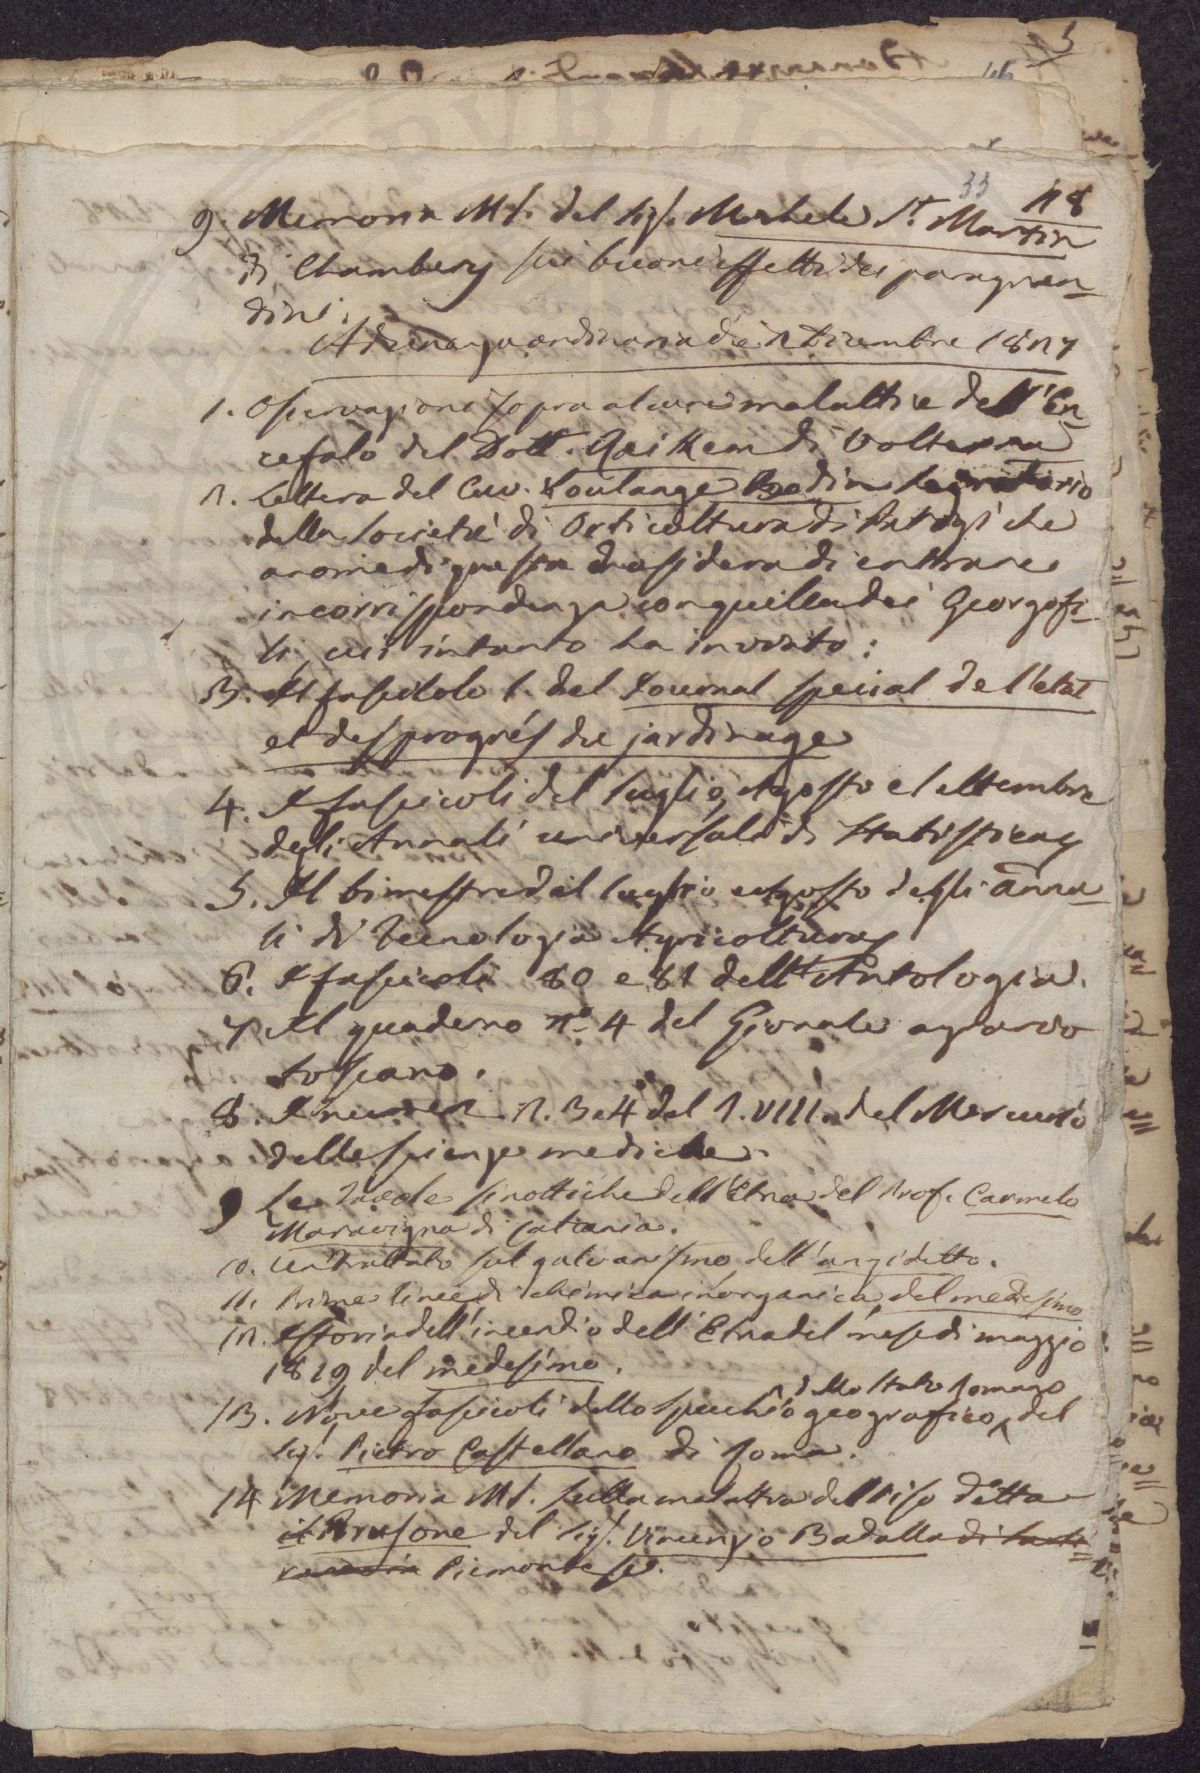 33 18
9. Memoria MS. del Sig.r Michele S.t Martin
di Chambery sui buoni effetti dei paragran-
dini.
Adunanza ordinaria de 2 Dicembre 1827
1. Osservazioni sopra alcune malattie dell'En-
cefalo del Dott. Gaitken di Volterra
2. Lettera del Cav. Soulange Bodin Segretario
della Società di Orticoltura di Parigi che
a nome di questa desidera di entrare
in corrispondenza con quella dei Georgofi-
li, cui intanto ha inviato:
3. Il fascicolo 1. del Journal special de l'etat
et des progrés du jardinage
4. I fascicoli del luglio, Agosto e Settembre
degli Annali universali di Statistica
5. Il bimestre del luglio e Agosto degli Anna-
li di Tecnologia Agricoltura
6. I fascicoli 80 e 81 dell'Antologia.
7. Il quaderno n.o 4 del Giornale agrario
toscano.
8. I numeri 2. 3 e 4 del T. VIII. del Mercurio
delle scienze mediche.
9 Le Tavole sinottiche dell'Etna del Prof. Carmelo
Maravigna di Catania.
10. Un Trattato sul galvanismo dell'anzidetto.
11. Prime linee di chimica inorganica, del medesimo
12. Istoria dell'incendio dell'Etna del mese di maggio
1819 del medesimo.
13. Nove fascicoli dello specchio geografico dello Stato Romano del
Sig.r Pietro Castellano di Roma.
14 Memoria MS. sulla malattia del Riso detta
il Brusone del Sig.r Vincenzo Badalla di
Piemontese.